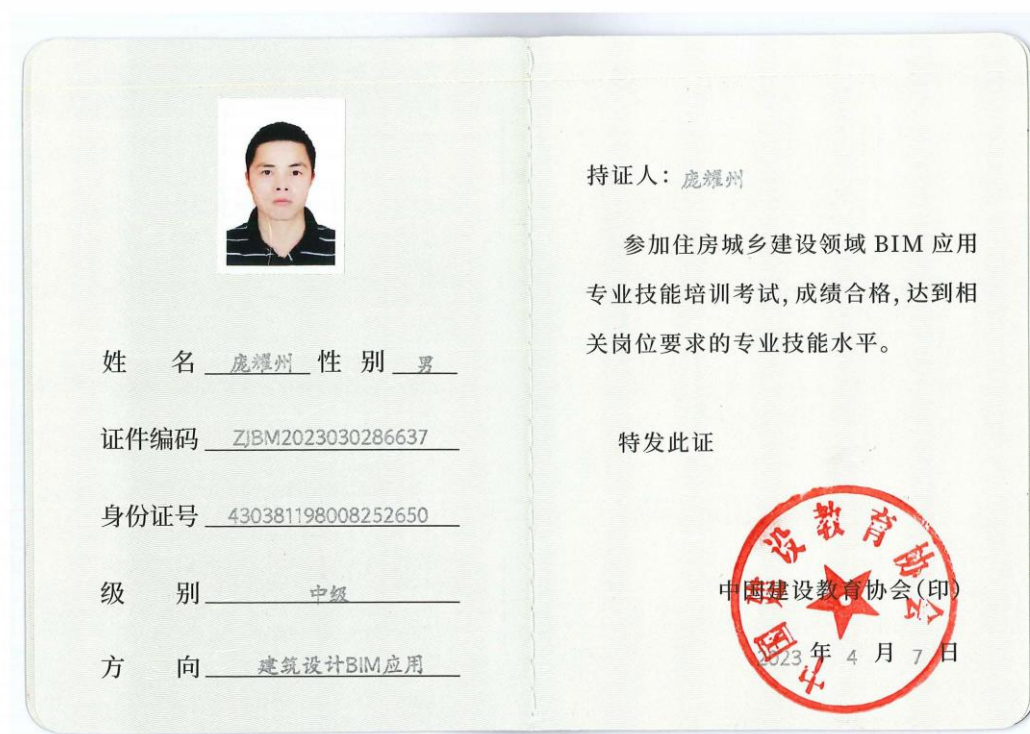 姓 名 庞耀州 性 别 男
证件编码 ZJBM2023030286637
身份证号 430381198008252650
级 别 中级
方 向 建筑设计BIM应用
持证人：庞耀州
参加住房城乡建设领域 BIM 应用
专业技能培训考试，成绩合格，达到相
关岗位要求的专业技能水平。
特发此证
中国建设教育协会
中国建设教育协会(印)
2023 年 4 月 7 日